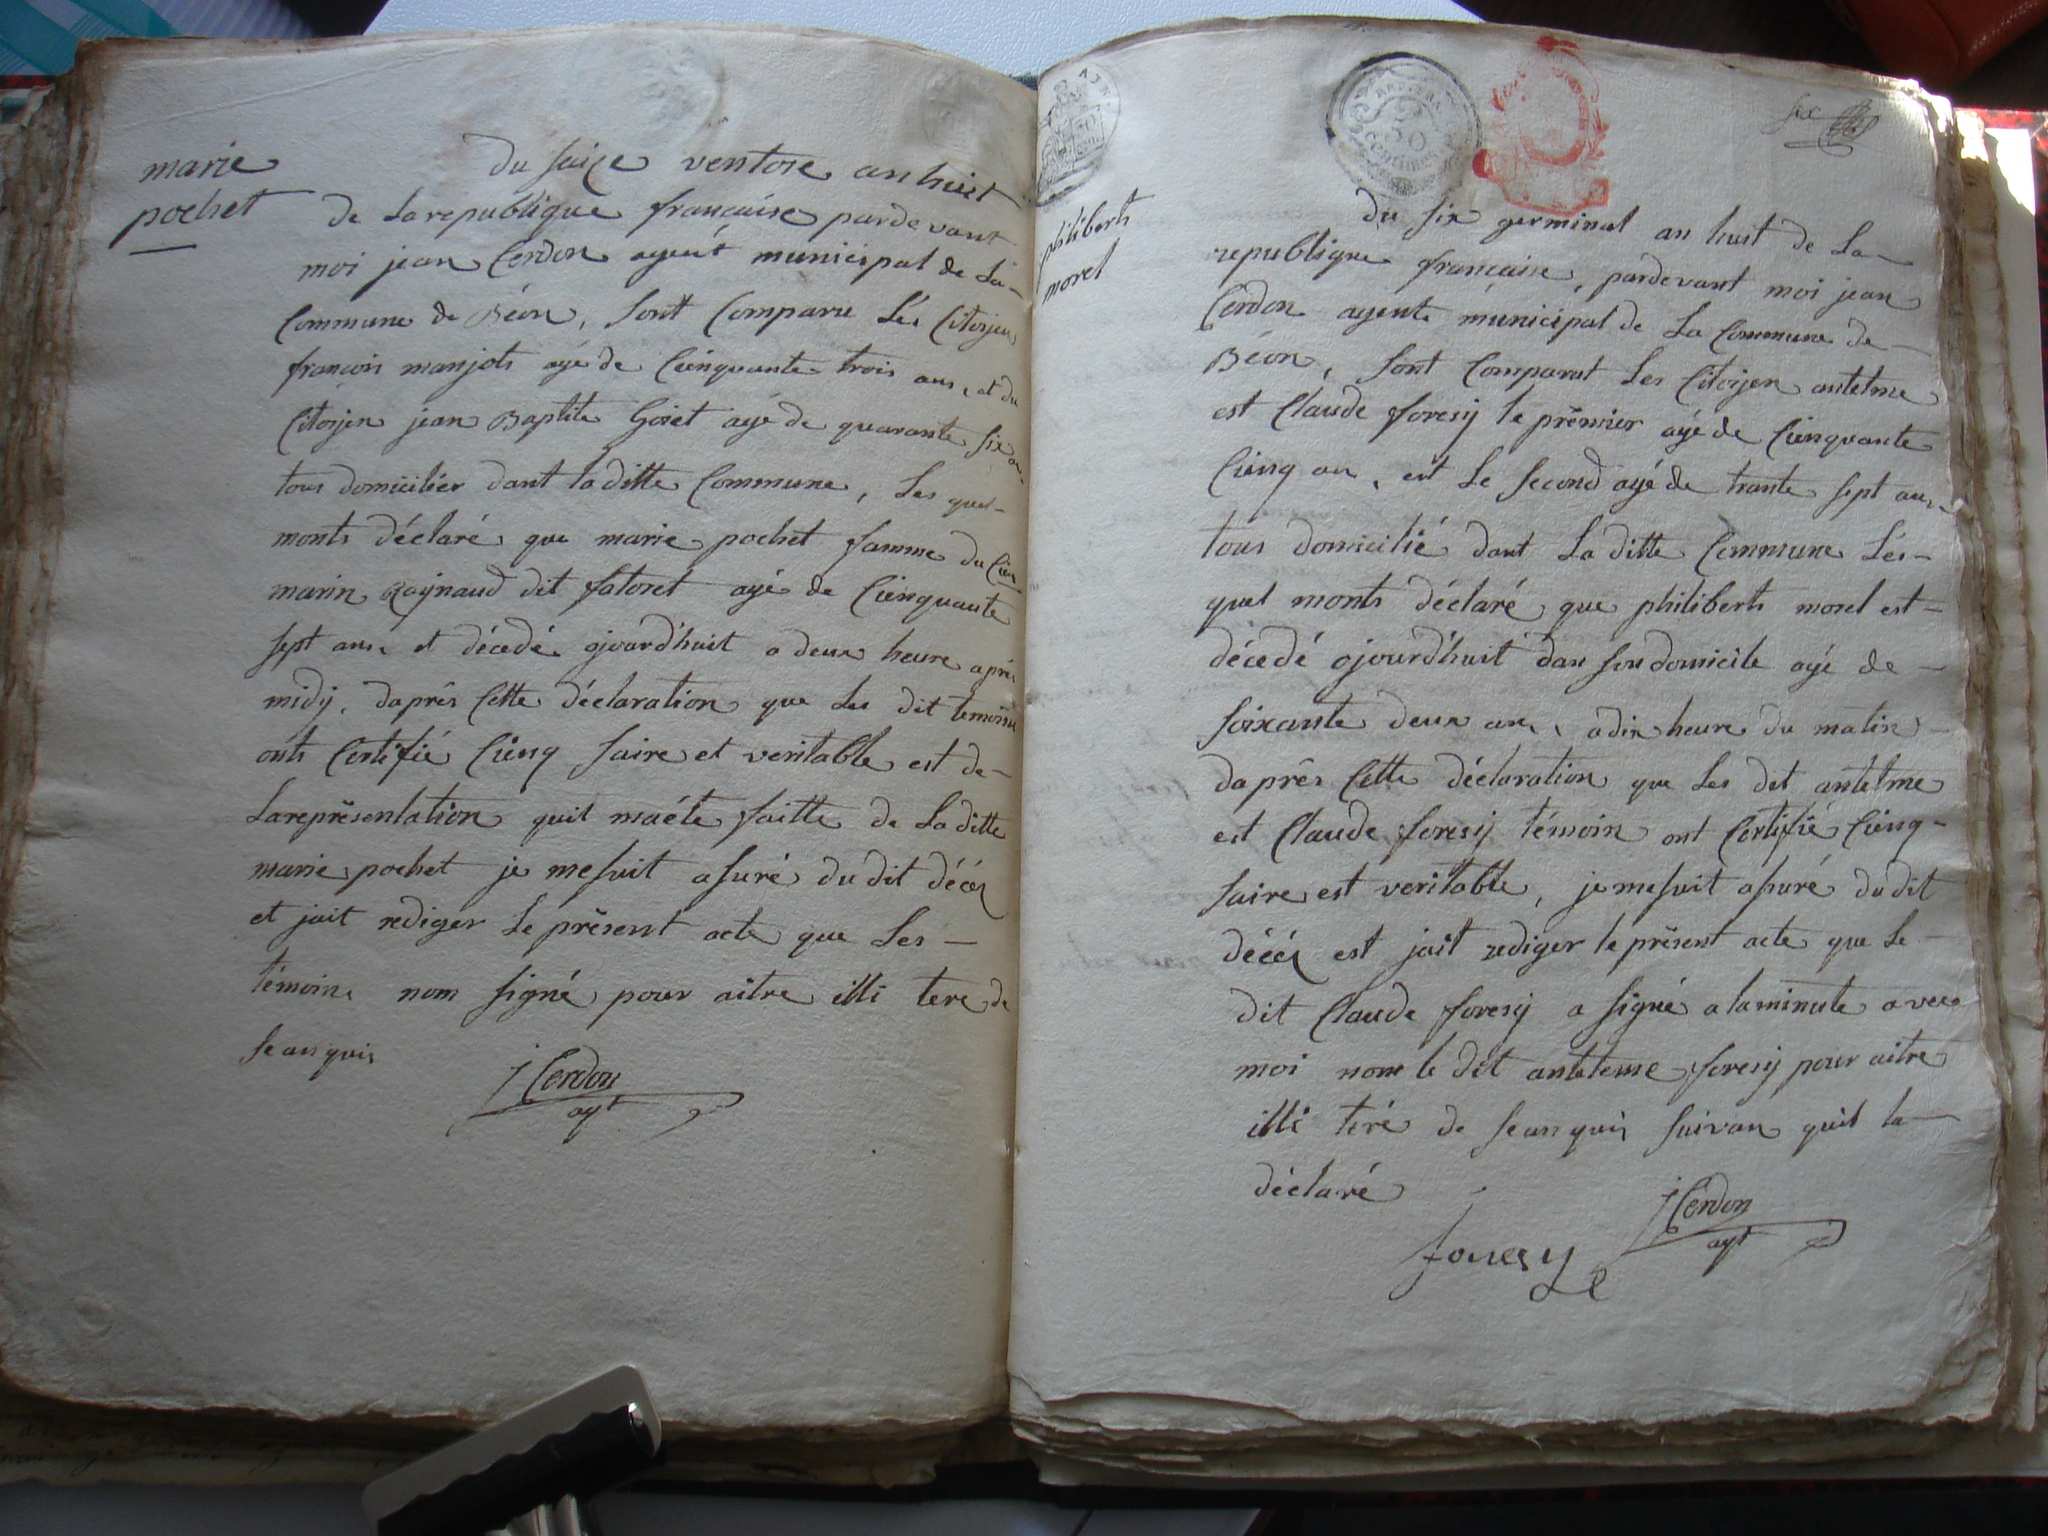 marie
pochet
du saize ventose an huit
de La republique française pardevant
moi jean Cerdon agent municipal de La
Commune de Béon, sont Comparu Les Citoijen
françois manjots agé de Cienquante trois ans, et du
Citoijen jean Baptite Goset agé de quarante six an
tous domicilier dant la ditte Commune, Les quel
monts déclaré que marie pochet famme du Cien
marin Raijnaud dit fatoret agé de Cienquante
sept ans et décédé ojourd'huit a deux heure aprés
midij, daprês Cette déclaration que Les dit temoins
onts Certifié Cienq saire et veritable est de
La représentation quil maéte faitte de La ditte
marie pochet je me suit asuré du dit décés
et jait rediger Le présent acte que Les
témoins nom signé pour aitre illi tere de
se anquis
j Cerdon
agt
AJN.
philiberts
morel
50
centimes
six
du six germinal an huit de La
republique française, pardevant moi jean
Cerdon agents municipal de La Commune de
Béon, sont Comparut Les Citoijen antelme
est Claude foresij le prémier agé de Cienquante
Cienq an, est Le second agé de trante sept ans
tous domicilié dant La ditte Commune Lés
quel monts déclaré que philiberts morel est
décedé ojourd'huit dan son domicile agé de
soixante deux an, a dix heure du matin
daprês Cette déclaration que Les dit antelme
est Claude foresij témoin ont Certifié Cienq
saire est veritable, je me suit asuré du dit
décés est jait rediger le présent acte que Le
dit Claude foresij a signé a la minute avec
moi nom le dit anteleme foresij pour aitre
illi téré de se anquis suivan quil la
déclaré
j Cerdon
agt
foresy